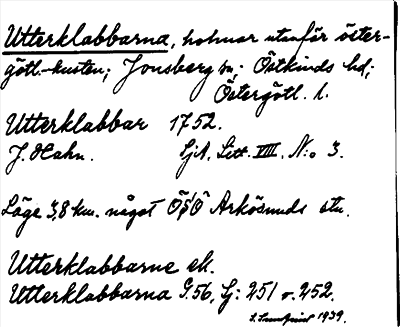 Utterklabbarna, holmar utanför öster-
götl.-kusten; Jonsberg sn; Östkinds hd;
Östergötl. l.
Utterklabbar 1752.
J. Hahn. SjA. Litt. VIII. N:o 3.
Läge 3,8 km. något Ö§Ö Arkösunds stn.
Utterklabbarne ek.
Utterklabbarna G.56, Sj: 251 o. 252.
1939.